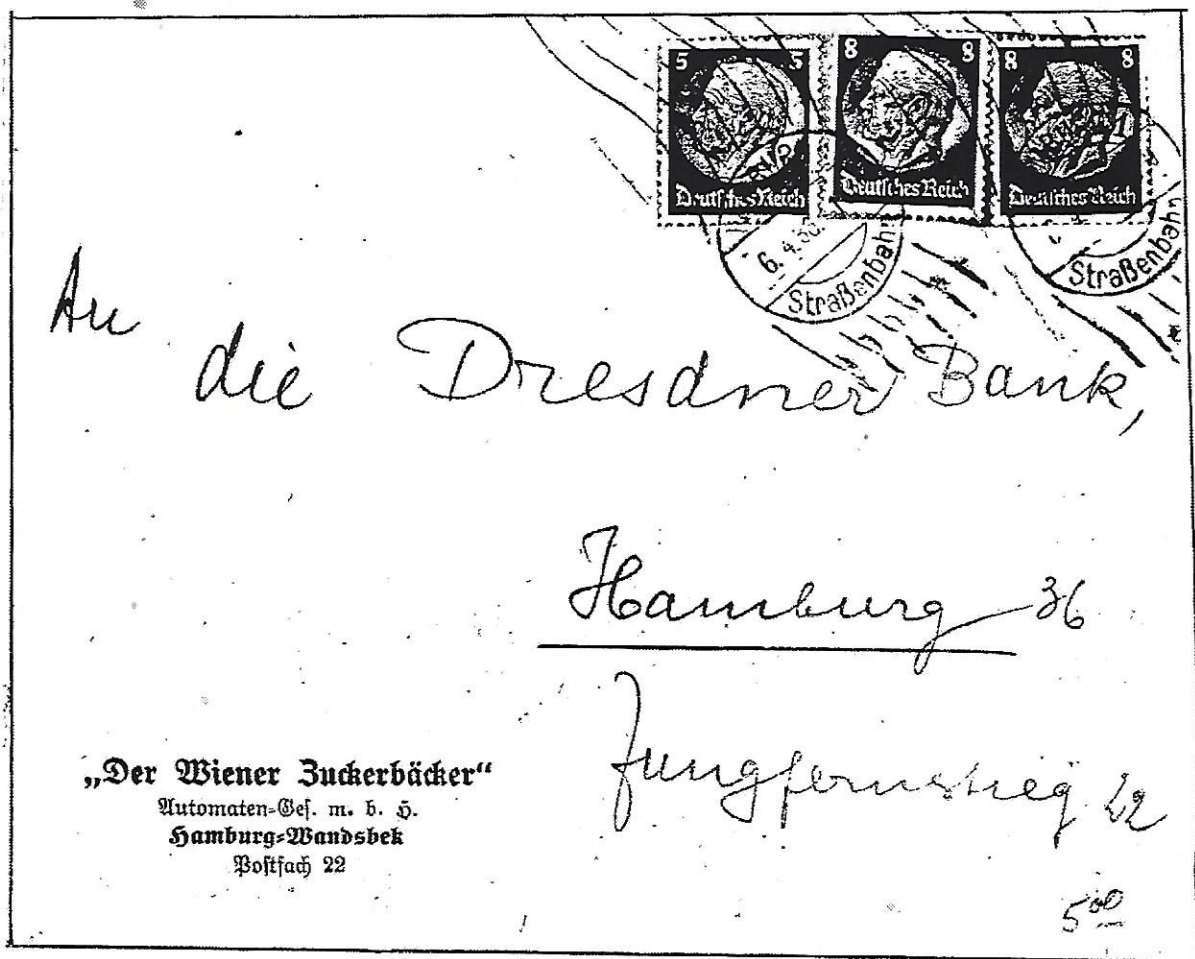 5 5 8 8 8 8
Deutsches Reich Deutsches Reich Deutsches Reich
6.4.36.
Straßenbahn Straßenbahn
An
die Dresdner Bank,
Hamburg 36
Jungfernstieg 22
„Der Wiener Zuckerbäcker“
Automaten-Ges. m. b. H.
Hamburg-Wandsbek
Postfach 22
5⁰⁰